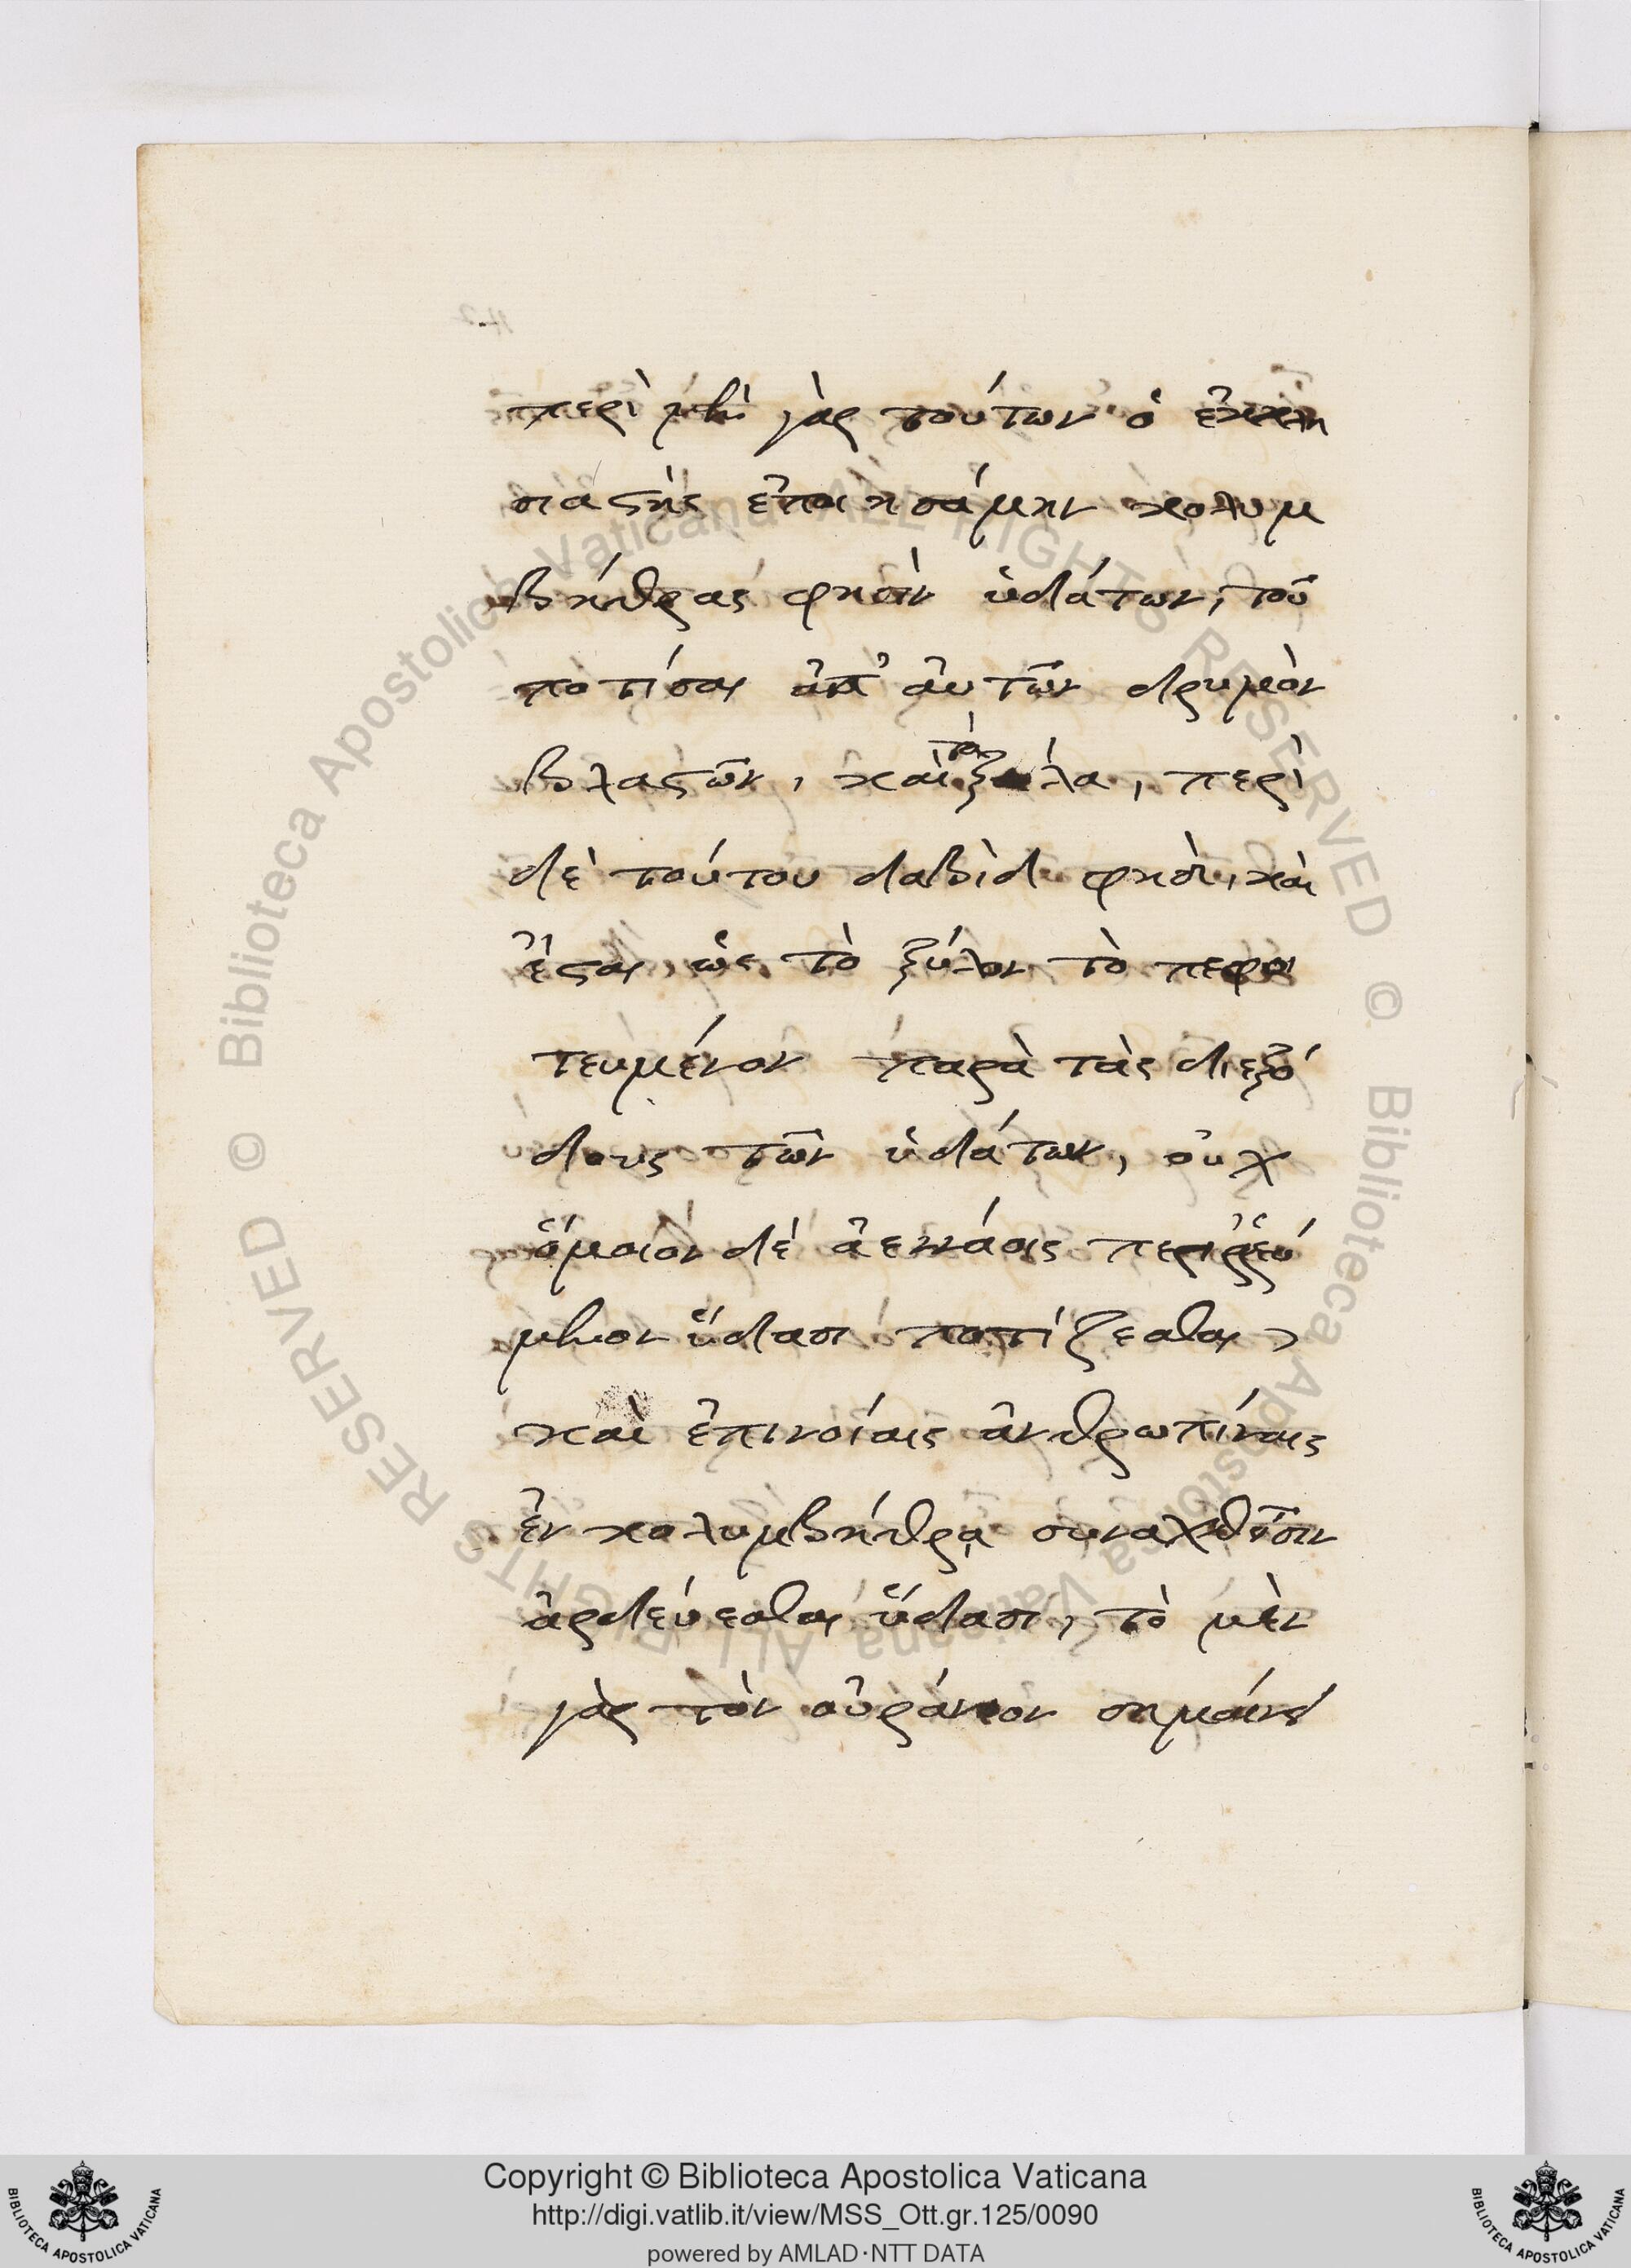 περὶ μὲν γὰρ τούτων ὁ ἐκκλη
σιαστὴς ἐποιησάμην κολυμ
βήθρας φησὶν ὑδάτων, τοῦ
ποτίσαι ἀπ' ἀυτῶν δρυμὸν
βλαστῶν, καὶ τὰ ξύλα, περὶ
δὲ τούτου δαβὶδ φησὶ, καὶ
ἔσται ὡς τὸ ξύλον τὸ πεφυ
τευμένον παρὰ τὰς διεξό
δους τῶν ὑδάτων, οὐχ
ὅμοιον δὲ ἀεννάοις περιῤῥεό
μενον ὕδασι ποτίζεσθαι,
καὶ ἐπινοίαις ἀνθρωπίναις
ἐν κολυμβήθρᾳ συναχθεῖσιν
ἀρδεύεσθαι ὕδασι, τὸ μὲν
γὰρ τὸν οὐράνιον σημαίνει
© Biblioteca Apostolica Vaticana ALL RIGHTS RESERVED
© Biblioteca Apostolica Vaticana ALL RIGHTS RESERVED
Copyright © Biblioteca Apostolica Vaticana
http://digi.vatlib.it/view/MSS_Ott.gr.125/0090
powered by AMLAD·NTT DATA
BIBLIOTECA APOSTOLICA VATICANA
BIBLIOTECA APOSTOLICA VATICANA